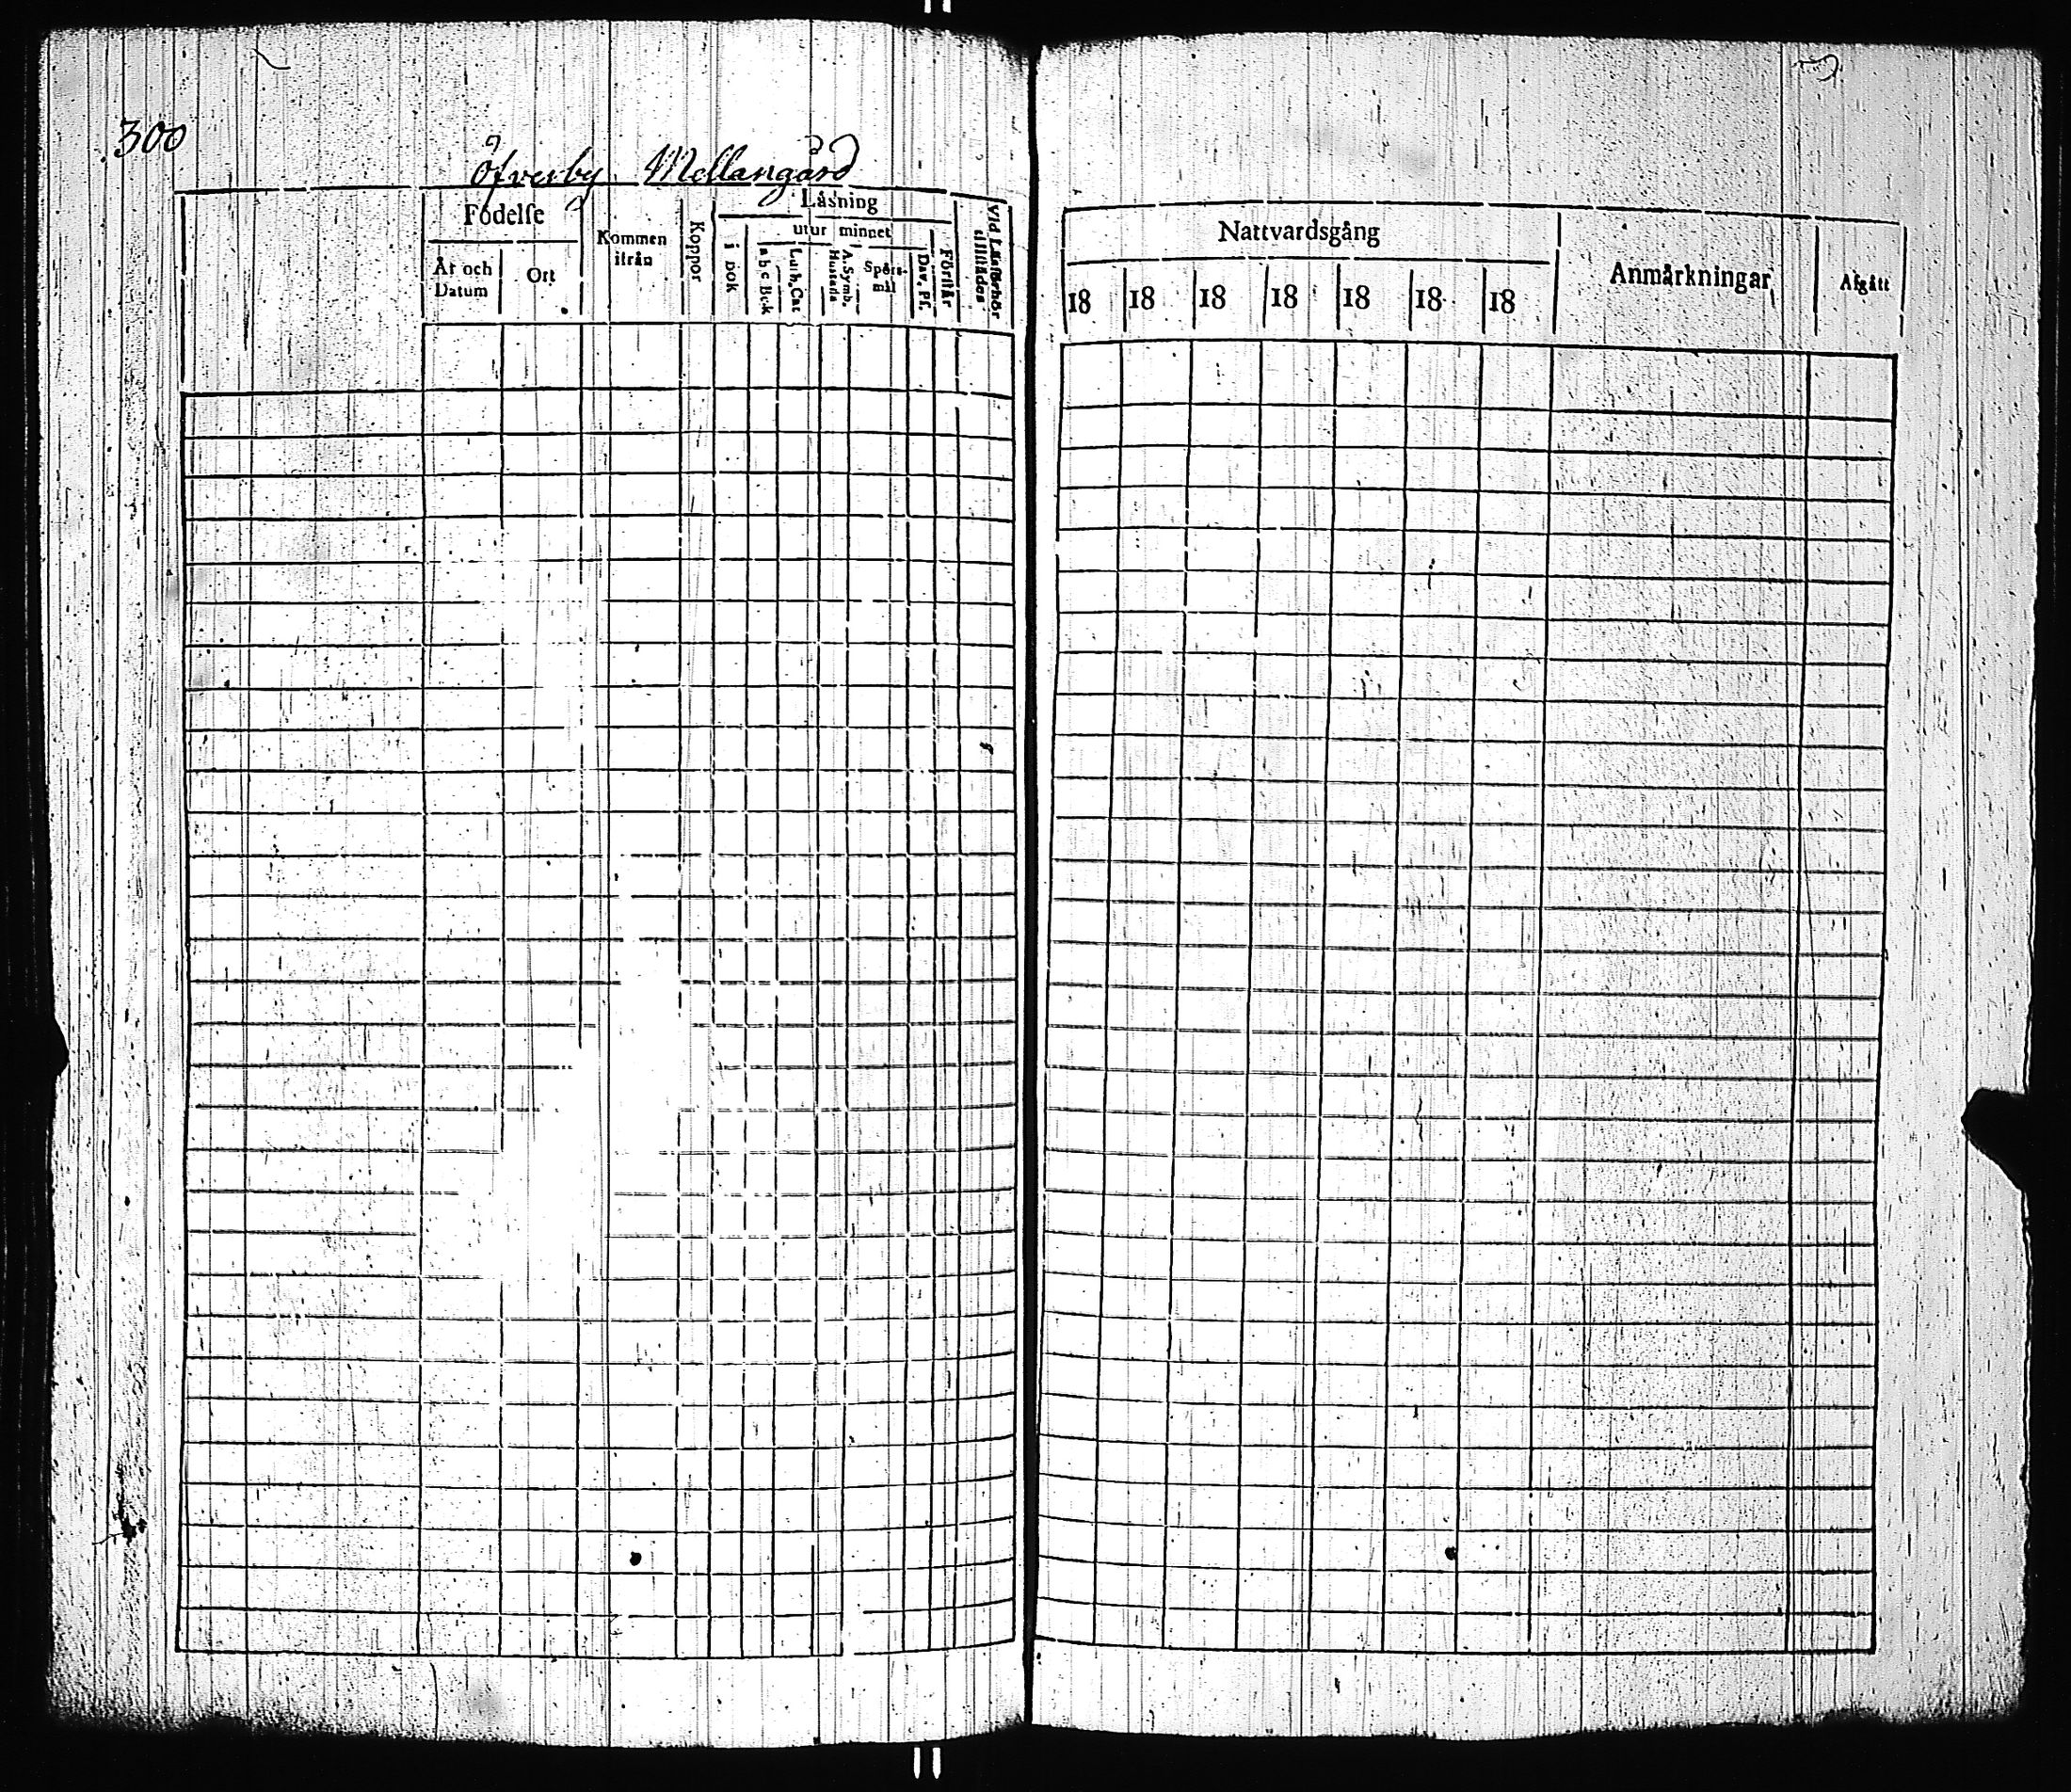 300
Öfverby Mellangård
Födelse
År och Datum
Ort
Kommen ifrån
Koppor
Läsning
i bok
utur minnet
a b c Bok
Luth. Cat.
A. Symb. Hustafla
Spörsmål
Dav. Ps.
Förstår
Vid Läsförhör tillstädes
Nattvardsgång
18 18 18 18 18 18 18
Anmärkningar
Afgått